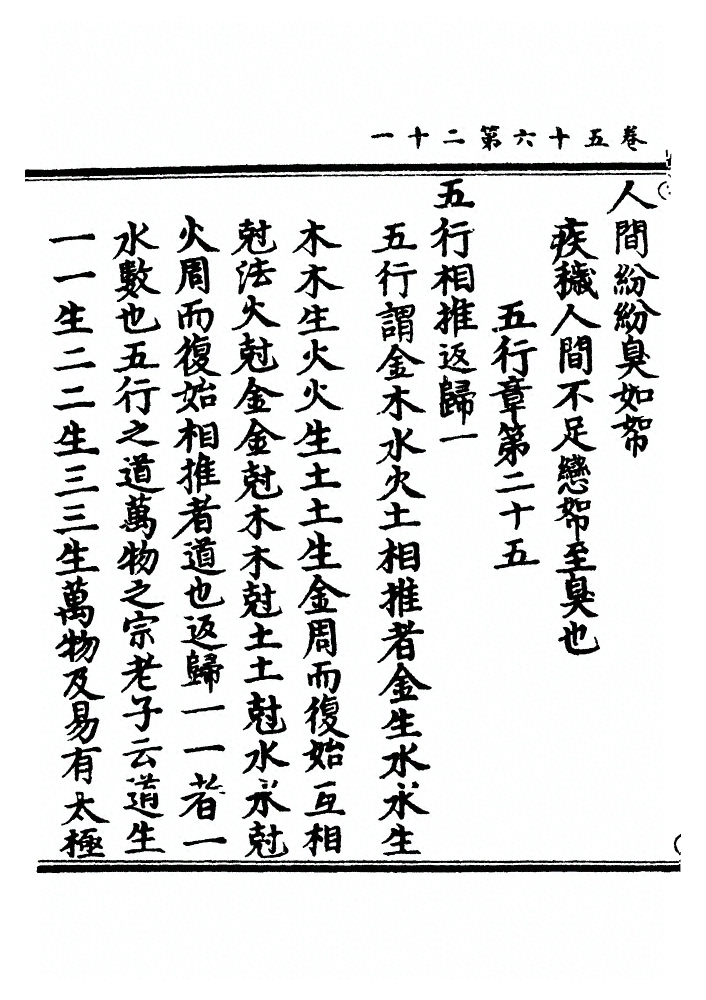 卷五十六第二十一
人間紛紛臭如帤
疾穢人間不足戀帤至臭也
五行章第二十五
五行相推返歸一
五行謂金木水火土相推者金生水水生
木木生火火生土土生金周而復始互相
尅法火尅金金尅木木尅土土尅水水尅
火周而復始相推者道也返歸一一者一
水數也五行之道萬物之宗老子云道生
一一生二二生三三生萬物及易有太極